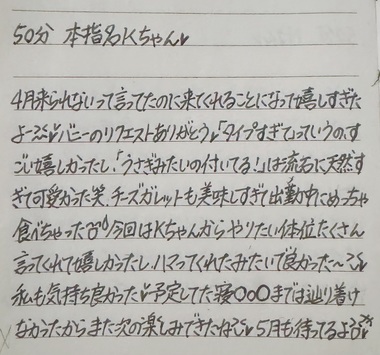 50分 本指名Kちゃん♥
4月来られないって言ってたのに来てくれることになって嬉しすぎた
よ〜 バニーのリクエストありがとう♥「タイプすぎて」っていうのす
ごい嬉しかったし、「うさぎみたいの付いてる!」は流石に天然す
ぎて可愛かった笑 チーズガレットも美味しすぎて出勤中にめっちゃ
食べちゃった 今回はKちゃんからやりたい体位たくさん
言ってくれて嬉しかったし、ハマってくれたみたいで良かった〜
私も気持ち良かった♥予定してた寝〇〇〇までは辿り着け
なかったからまた次の楽しみできたね 5月も待ってるよ